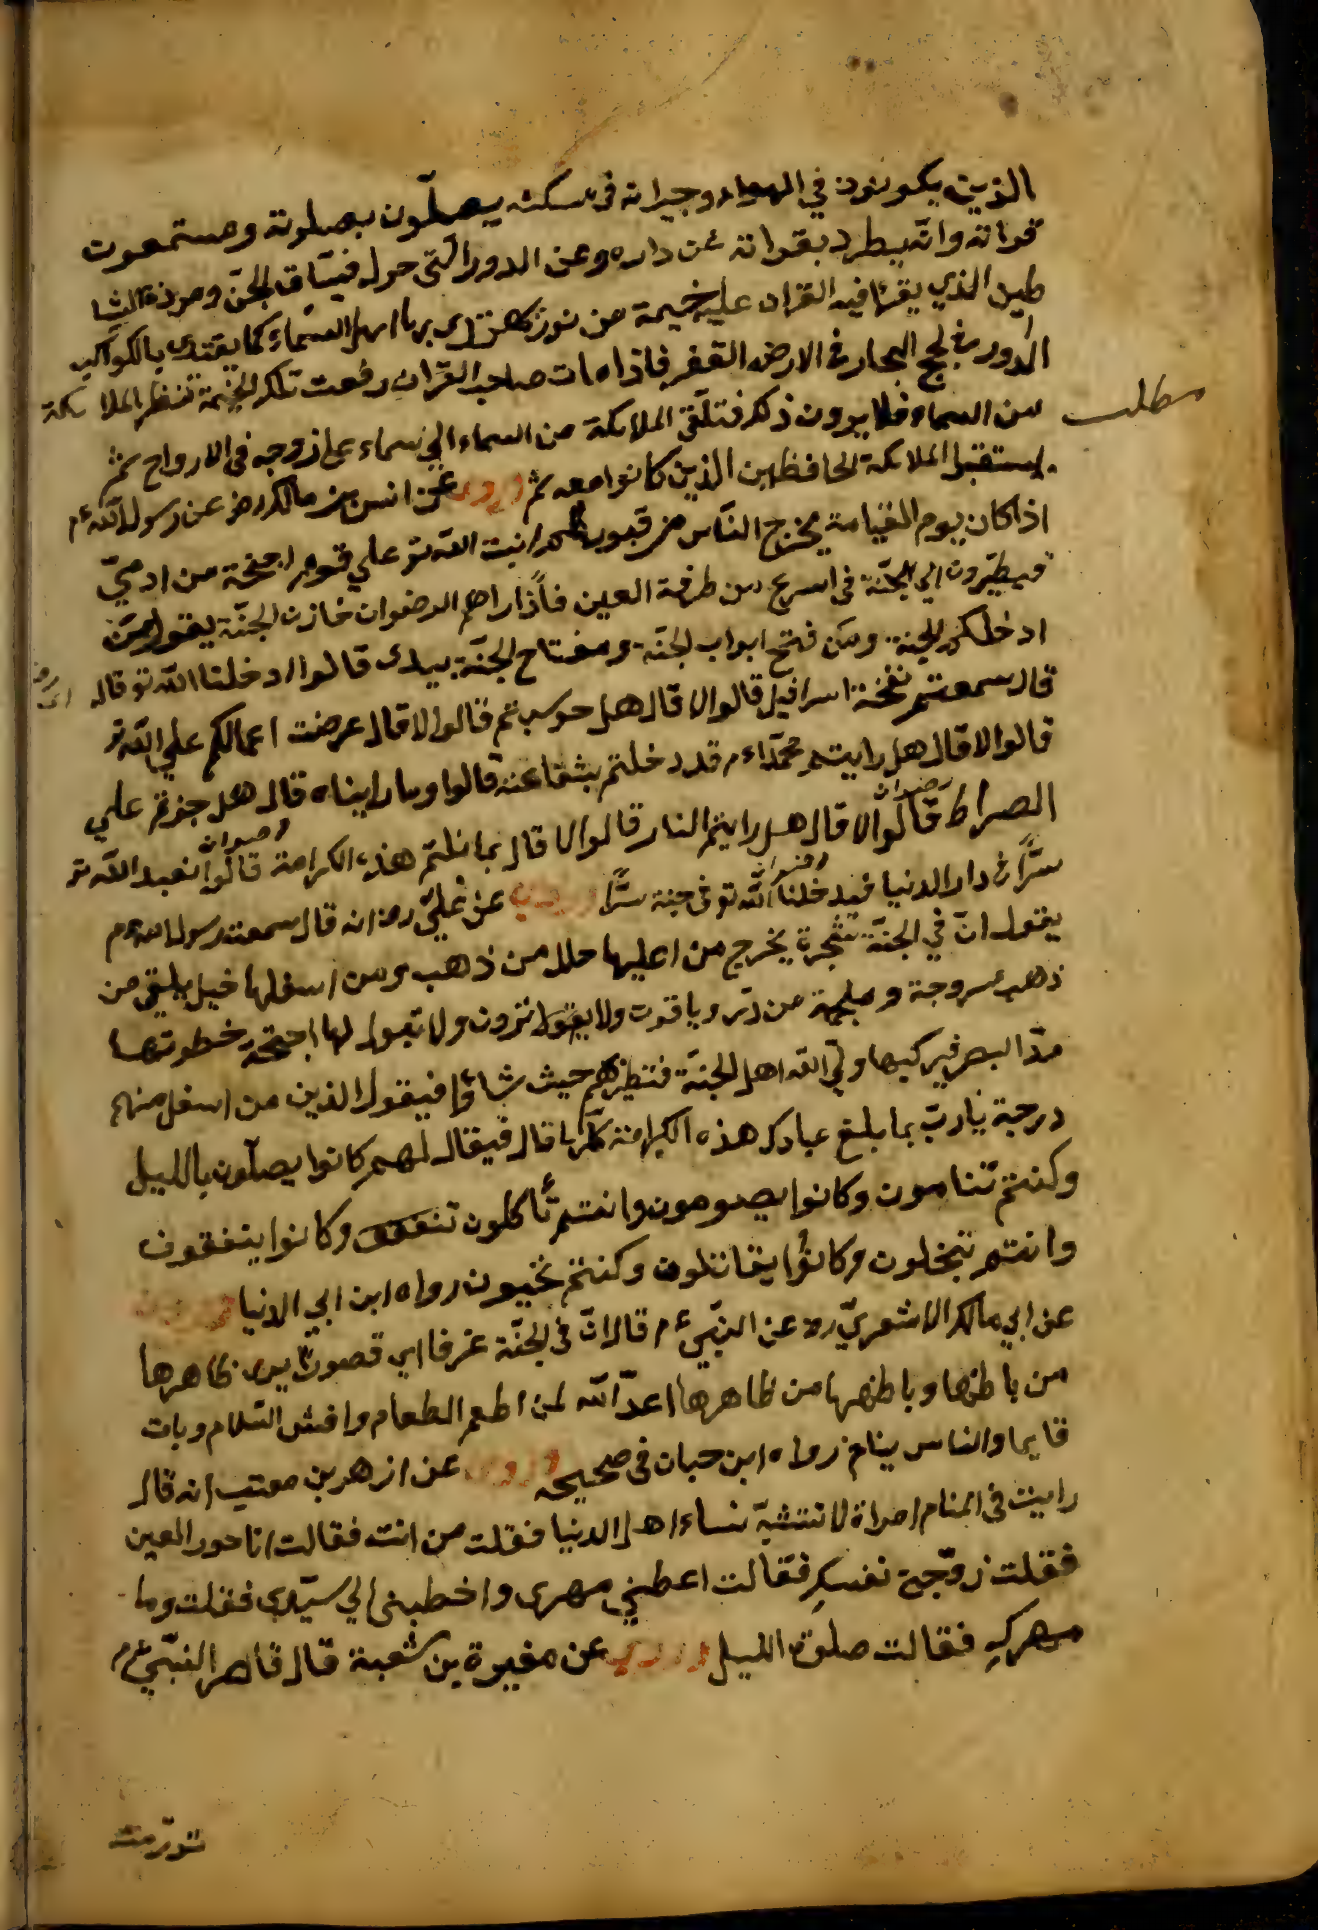 الذين يكونون في الهواء وجيرانه في مسكنه يصلّون بصلوته ومستمعون
قراته وانّه يطرد بقراته عن داره وعن الدور الّتي حوله فسّاق الجنّ ومردة الشيا
طين الذي يقرا فيه القران عليه خيمة من نور يهتدي بها اهل السّماء كما يقتدى بالكواكب
الدّور في لجج البحار في الارض القفر فاذا مات صاحب القران رفعت تلك الخيمة تنظر الملائكة
مطلب
من السماء فلا يرون ذلك فتلقّى الملائكة من السماء الي سماء على زوجه في الارواح ثم
يستقبل الملائكة الحافظين الذين كانوا معه ثم وروي عن انس بن مالك رض عن رسول الله عم
اذا كان يوم القيامة يخرج النّاس من قبورهم انبت الله تع علي قوم اجنحة من ادميّ
فيطيّرون الي الجنّة في اسرع من طرفة العين فاذا راهم الرضوان خازن الجنّة يقول من
ادخلكم الجنة ومن فتح ابواب الجنّة ومفتاح الجنّة بيدى قالوا ادخلنا الله تع قال
قال سمعتم نفخة اسرافيل قالوا لا قال هل حوسبتم قالوا لا قال عرضت اعمالكم علي الله تع
قالوا لا قال هل رايتم محمّدا عم قد دخلتم بشفاعته قالوا وما رايناه قال هل جزتم علي
الصراط قالوا لا قال هل رايتم النار قالوا لا قال بما نلتم هذه الكرامة قالوا نعبد الله تع
سرّا في دار الدنيا فيدخلنا الله تع في جنة سرّا وروي عن عليّ رض انه قال سمعت رسول الله عم
يقول انّ في الجنّة شجرة يخرج من اعليها حلل من ذهب ومن اسفلها خيل بلق من
ذهب مسروجة وملجمة من درّ وياقوت ولا تروث ولا تبول لها اجنحة خطوتها
مدّ البصر فيركبها وليّ الله اهل الجنّة فتطير بهم حيث شاؤا فيقول الذين من اسفل منهم
درجة يا ربّ بما بلغ عبادك هذه الكرامة كلّها قال فيقال لهم كانوا يصلّون بالليل
وكنتم تنامون وكانوا يصومون وانتم تأكلون وكانوا ينفقون
وانتم تبخلون وكانوا يقاتلون وكنتم تخبون رواه ابن ابي الدنيا وروي
عن ابي مالك الاشعريّ رض عن النبّي عم قال انّ في الجنّة غرفا اي قصورا يرى ظاهرها
من باطنها وباطنها من ظاهرها اعدّ الله لمن اطعم الطعام وافش السّلام وبات
قايما والناس ينام رواه ابن حبان في صحيحه وروي عن ازهر بن معتب انه قال
رايت في المنام امراة لا تتشبّه نساء اهل الدنيا فقلت من انت فقالت انا حور العين
فقلت زوّجني نفسكِ فقالت اعطني مهرى واخطبنى الي سيّدي فقلت وما
مهركِ فقالت صلوة الليل وروي عن مغيرة بن شعبة قال قام النبّي عم
تورّمت